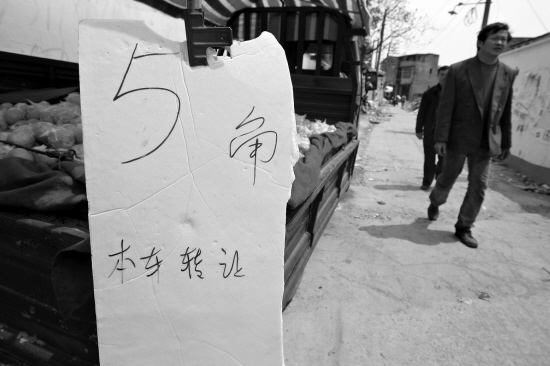 5角
本车转让